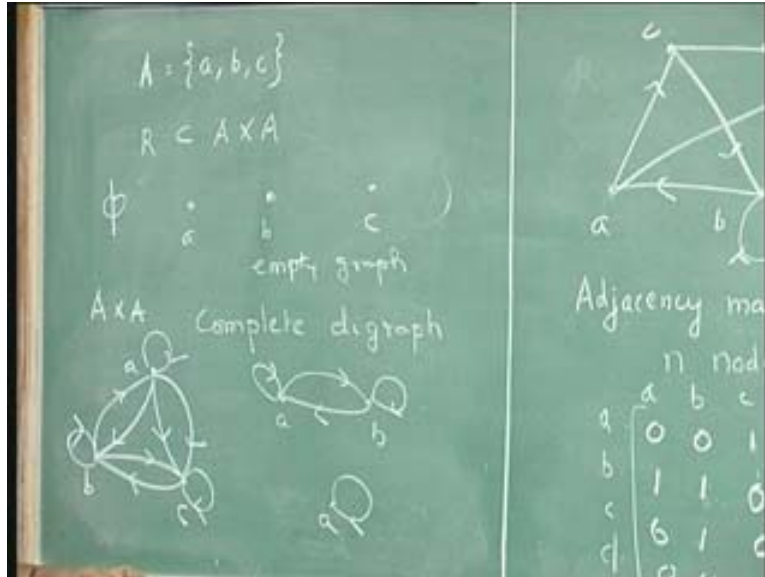 A = {a, b, c}
R ⊂ A X A
ϕ
a b c
empty graph
A x A Complete digraph
a
b
c
a b
a
c
a b
Adjacency ma
n nod
a b c
a 0 0 1
b 1 1 0
c 0 1 0
d 0